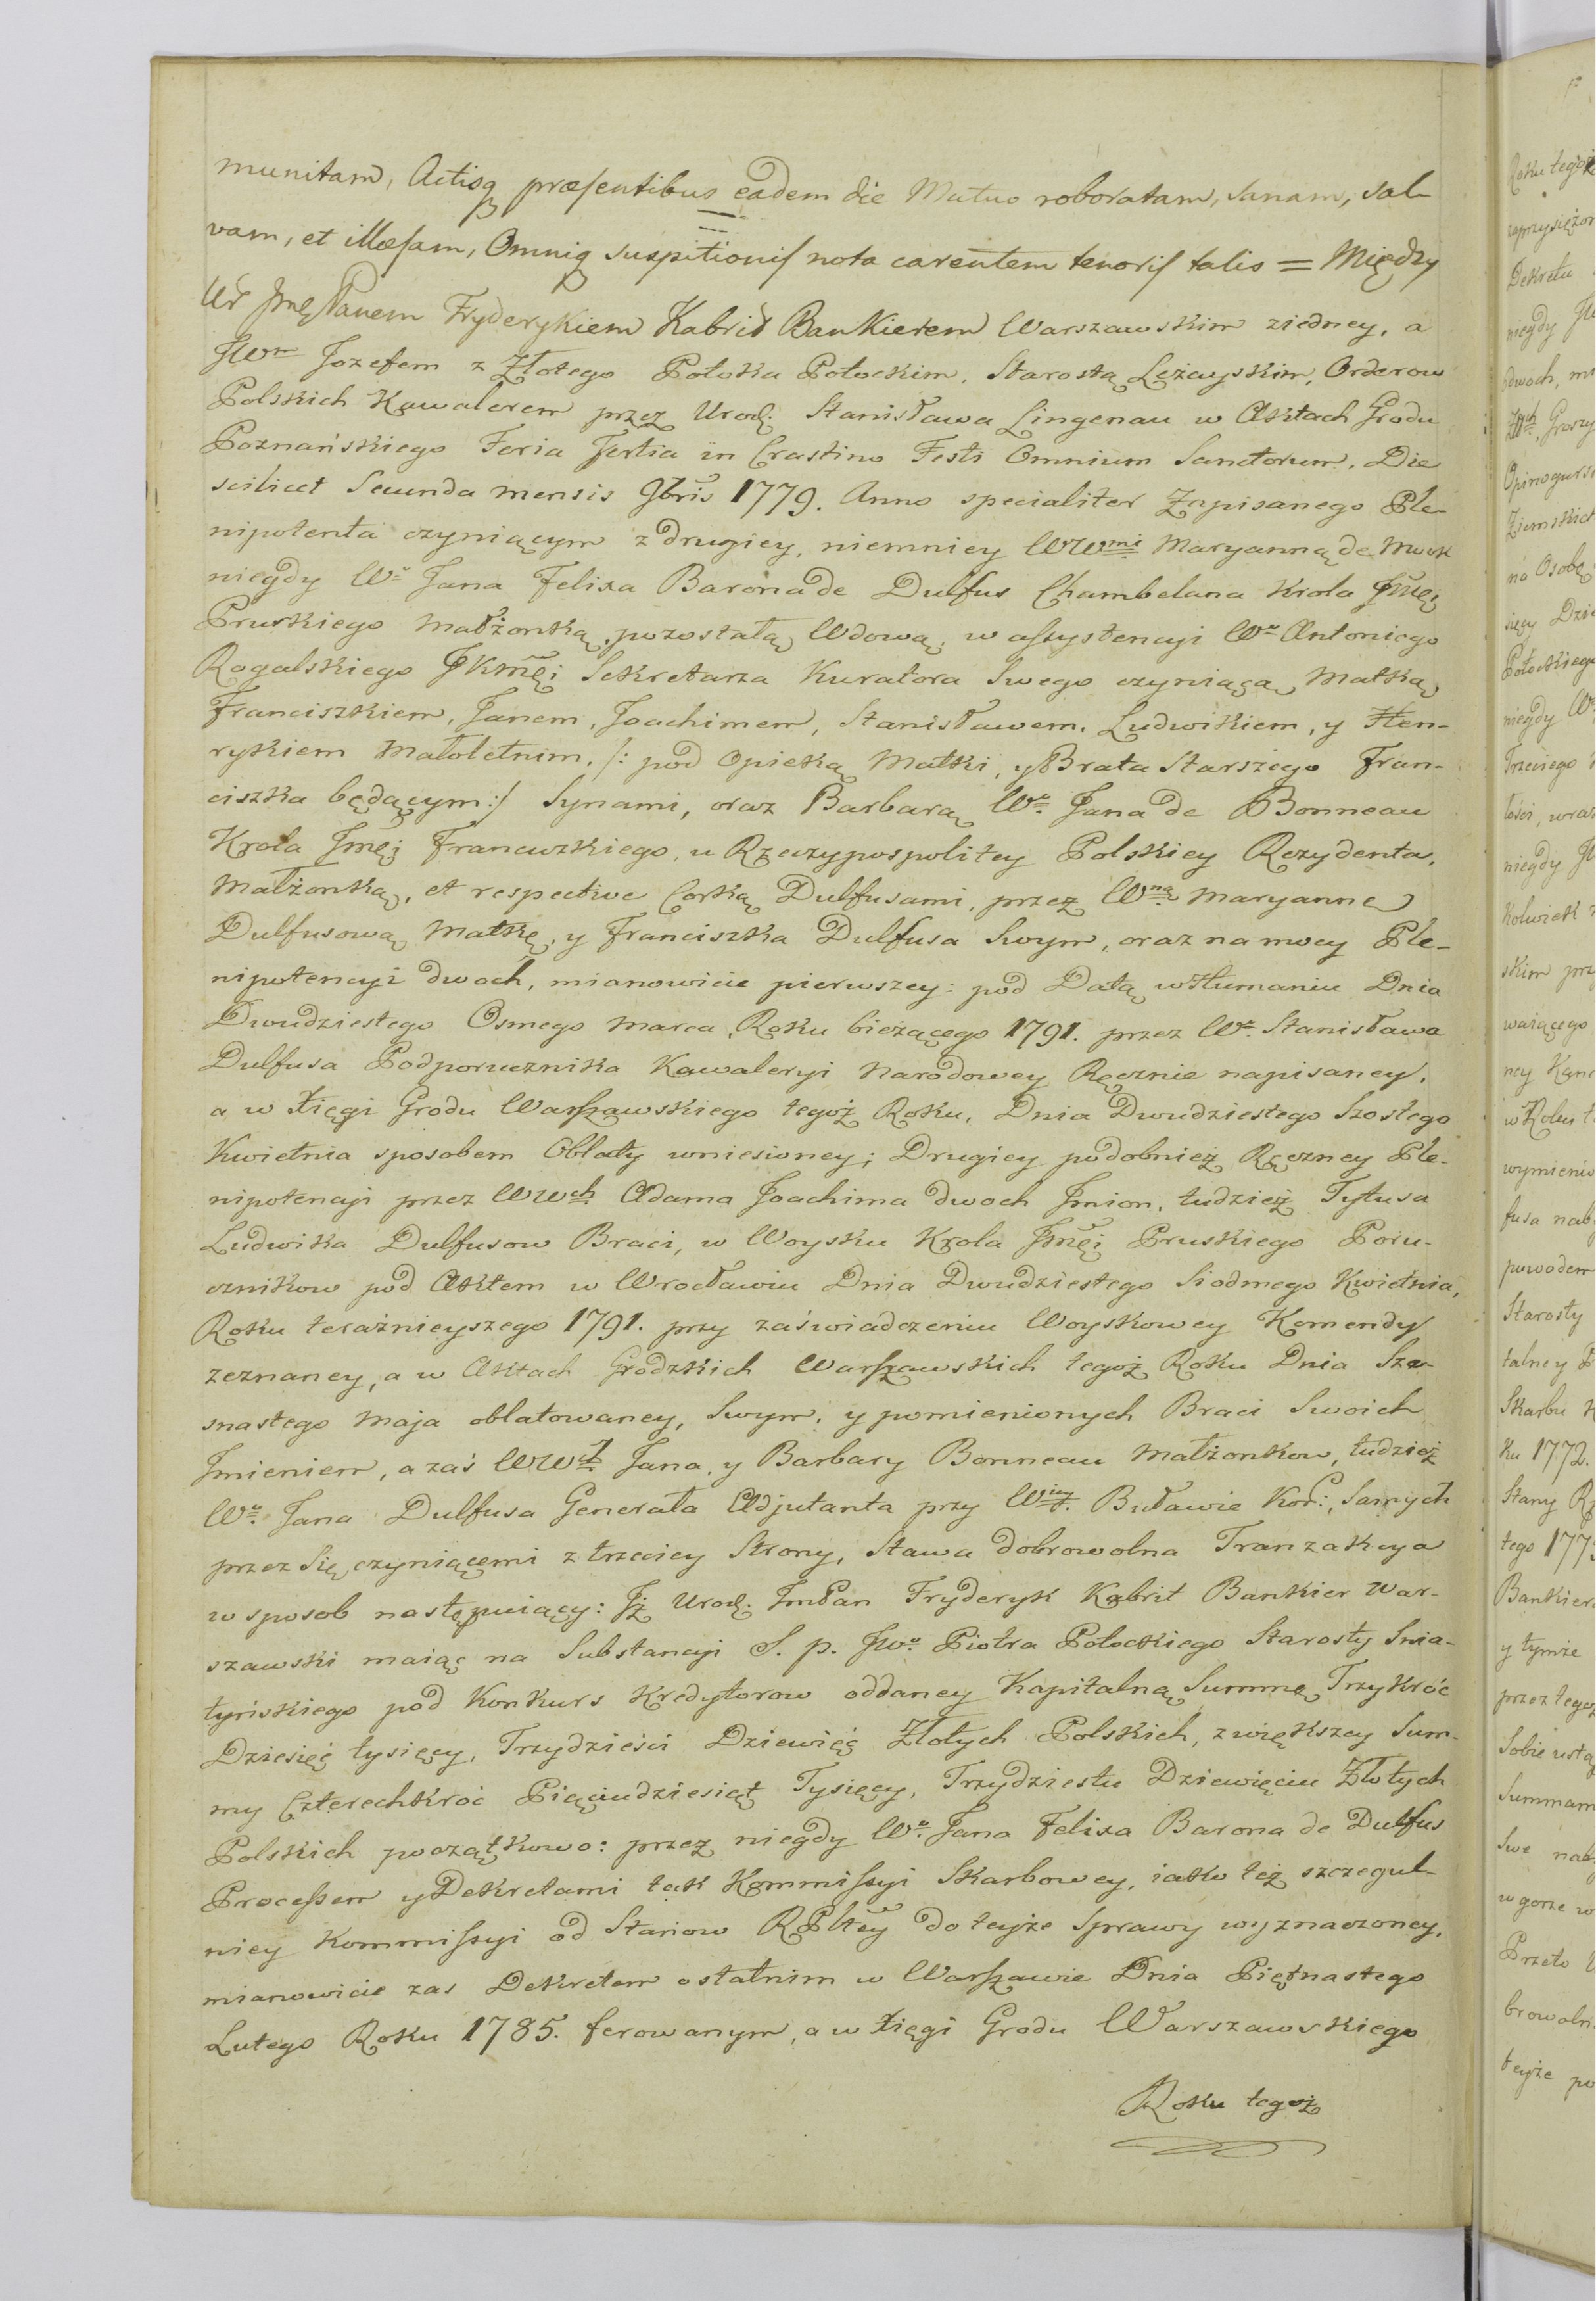 munitam, Actisq præsentibus eadem die Mutuo roboratam, sanam, sal-
vam, et illæsam, Omniq suspitionis nota carentem tenoris talis = Między
Ur Jmę Panem Fryderykiem Kabrit Bankierem Warszawskim ziedney, a
JWm Jozefem z Złotego Potoka Potockim, Starostą Leżayskim, Orderow
Polskich Kawalerem przez Urodz. Stanisława Lingenau w Aktach Grodu
Poznańskiego Feria Tertia in Crastino Festi Omnium Sanctorum, Die
scilicet Secunda mensis 9bris 1779. Anno specialiter Zapisanego Ple-
nipotenta czyniącym z drugiey, niemniey WWmi Maryanną de
niegdy Wo Jana Felixa Barona de Dulfus Chambelana Krola Jmći
Pruskiego Małżonką, pozostałą Wdową, w assystencyi Wo Antoniego
Rogalskiego JKmći Sekretarza Kuratora Swego czyniącą, Matką
Franciszkiem, Janem, Joachimem, Stanisławem, Ludwikiem, y Hen-
rykiem Małoletnim, /: pod Opieką Matki, y Brata Starszego Fran-
ciszka będącym :/ Synami, oraz Barbarą Wo Jana de Bonneau
Krola Jmći Francuzkiego, u Rzeczypospolitey Polskiey Rezydenta,
Małżonką, et respective Corką Dulfusami, przez Wną Maryannę
Dulfusową Matkę, y Franciszka Dulfusa Swym, oraz na mocy Ple-
nipotencyi dwoch, mianowicie pierwszey: pod Datą w Humaniu Dnia
Dwudziestego Osmego Marca Roku bieżącego 1791. przez Wo Stanisława
Dulfusa Podporucznika Kawaleryi Narodowey Ręcznie napisaney,
a w Xięgi Grodu Warszawskiego tegoż Roku, Dnia Dwudziestego Szostego
Kwietnia sposobem Oblaty wniesioney; Drugiey podobnież Ręczney Ple-
nipotencyi przez WWch Adama Joachima dwoch Jmion, tudzież Tytusa
Ludwika Dulfusow Braci, w Woysku Krola Jmći Pruskiego Poru-
cznikow pod Aktem w Wrocławiu Dnia Dwudziestego Siodmego Kwietnia,
Roku teraźnieyszego 1791. przy zaświadczeniu Woyskowey Komendy
zeznaney, a w Aktach Grodzkich Warszawskich tegoż Roku Dnia Sze-
snastego Maja oblatowaney, Swym, y pomienionych Braci Swoich
Jmieniem, a zaś WW Jana, y Barbary Bonneau Małżonkow, tudzież
Wo Jana Dulfusa Generała Adjutanta przy Wiey Buławie Kor:, Samych
przez Się czyniącemi z trzeciey Strony, Stawa dobrowolna Tranzakcya
w sposob następuiący: Jż Urodz. Jmć Pan Fryderyk Kabrit Bankier War-
szawski maiąc na Substancyi S. p. JWo Piotra Potockiego Starosty Snia-
tyńskiego pod Konkurs Kredytorow oddaney Kapitalną Summę Trzykroć
Dziesięć tysięcy, Trzydzieści Dziewięć Złotych Polskich, z większey Sum-
my Czterechkroć Pięciudziesiąt Tysięcy, Trzydziestu Dziewięciu Złotych
Polskich początkowo: przez niegdy Wo Jana Felixa Barona de Dulfus
Processem y Dekretami tak Kommissyi Skarbowey, iako też szczegul-
niey Kommissyi od Stanow RPltey do teyże Sprawy wyznaczoney,
mianowicie zas Dekretem ostatnim w Warszawie Dnia Piętnastego
Lutego Roku 1785. ferowanym, a w Xięgi Grodu Warszawskiego
Roku tegoż
Roku tegoż
Dekretu
niegdy
dwoch,
Groszy
Ziemskich
na Osobę
sięcy
Potockiego
niegdy
Trzeciego
niegdy
skim
waiącego
w Roku
powodem
Starosty
talney
Skarbu
ku 1772.
Stany
tego 177
Bankiera
y tymże
Sobie
Summam
Swe
w gorze
Przeto
teyże